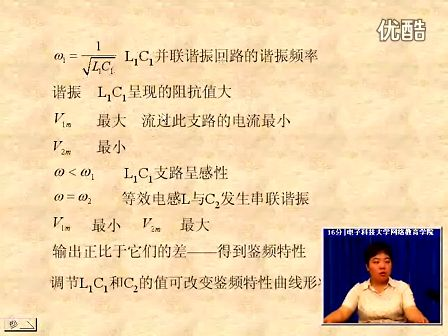 优酷
ω₁ = 1/√(L₁C₁) L₁C₁并联谐振回路的谐振频率
谐振 L₁C₁呈现的阻抗值大
V₁ₘ 最大 流过此支路的电流最小
V₂ₘ 最小
ω < ω₁ L₁C₁支路呈感性
ω = ω₂ 等效电感L与C₂发生串联谐振
V₁ₘ 最小 V₂ₘ 最大
输出正比于它们的差——得到鉴频特性
调节L₁C₁和C₂的值可改变鉴频特性曲线形
16分|电子科技大学网络教育学院